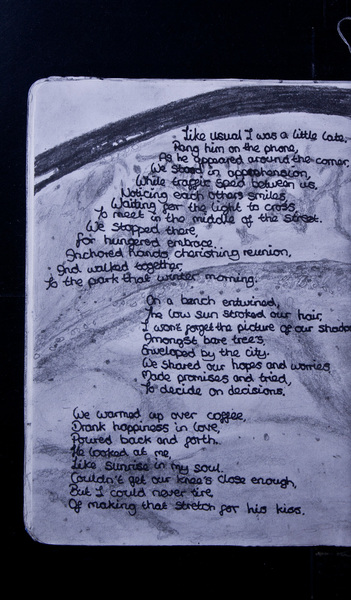 Like usual I was a little late,
Rang him on the phone,
As he appeared around the corner,
We stood in apprehension,
While traffic sped between us,
Noticing each others smiles,
Waiting for the light to cross,
To meet in the middle of the street.
We stopped there,
For hungered embrace.
Anchored hands, cherishing reunion,
And walked together,
To the park that winter morning.
On a bench entwined,
The low sun stroked our hair,
I won't forget the picture of our
Amongst bare trees,
Enveloped by the city.
We shared our hopes and worries
Made promises and tried,
To decide on decisions.
We warmed up over coffee,
Drank happiness in love,
Poured back and forth.
He looked at me,
Like sunrise in my soul.
Couldn't get our knee's close enough,
But I could never tire,
Of making that stretch for his kiss.